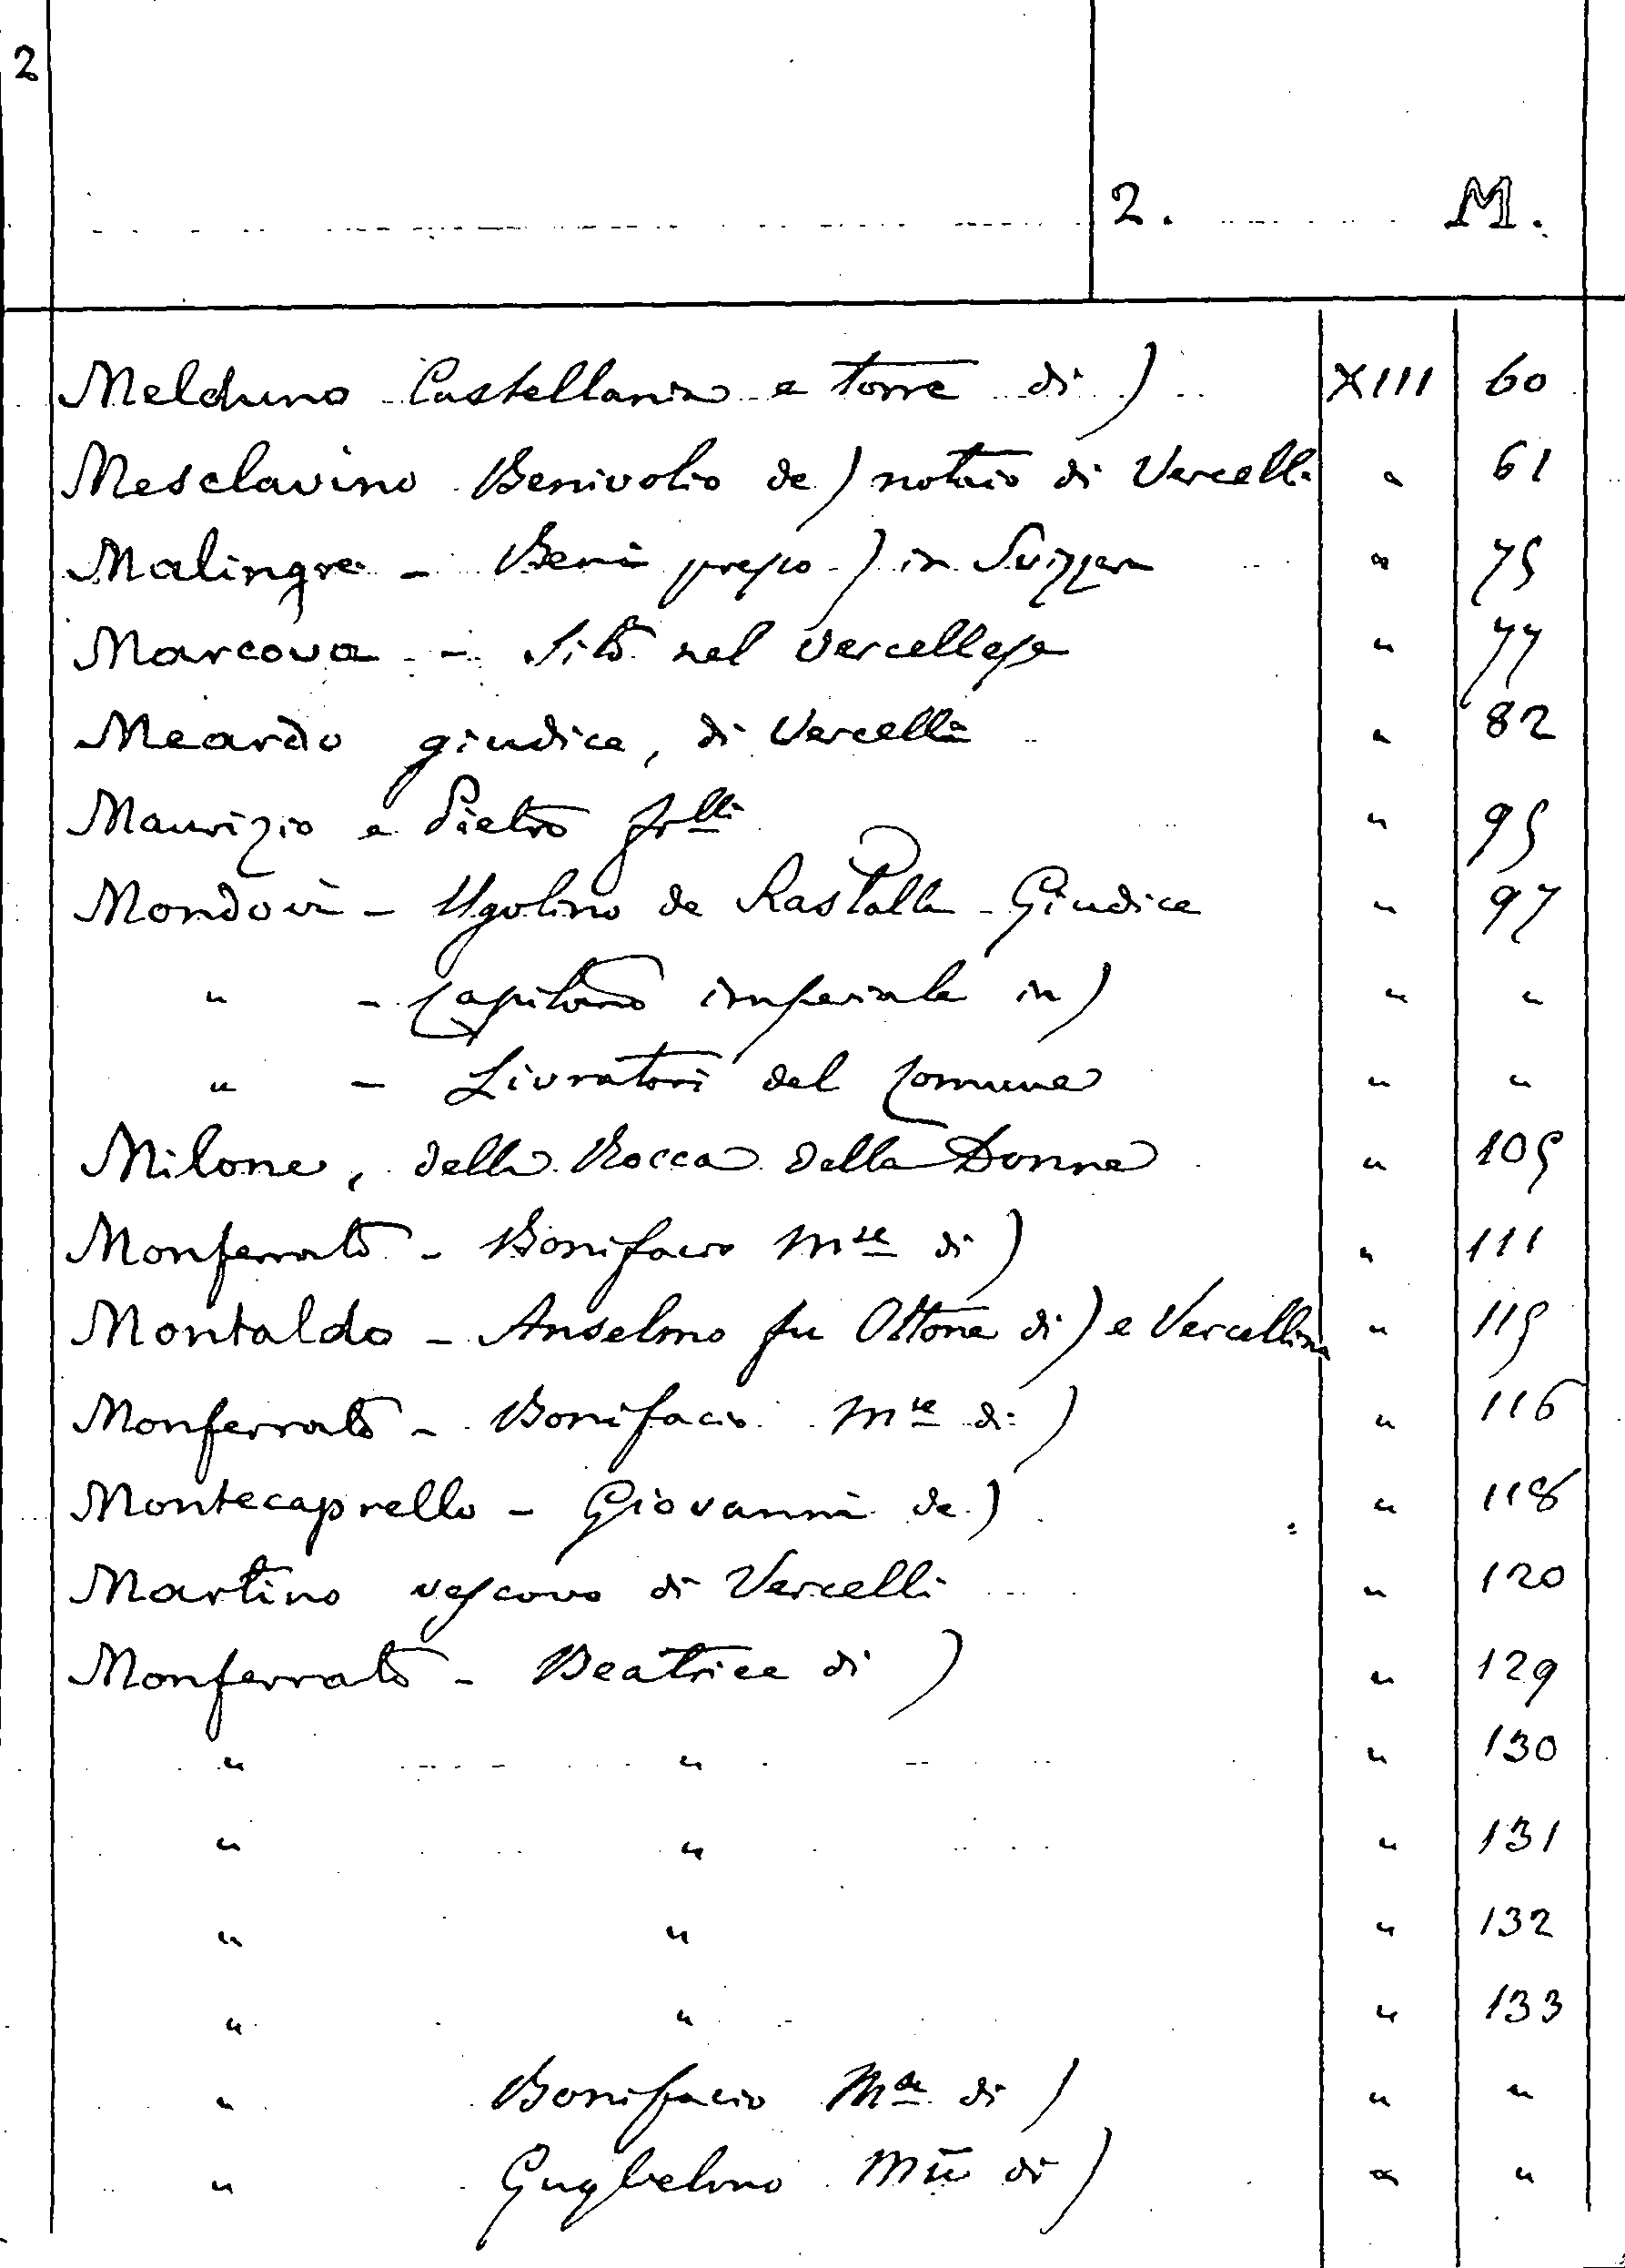 2
2. M.
Melduno Castellania e torre di) XIII 60
Mesclavino Benivolio de) notaio di Vercelli " 61
Malingre - Beni presso) in Svizzera " 75
Marcova - Sito nel Vercellese " 77
Meardo giudice, di Vercelli " 82
Maurizio e Pietro frlli " 95
Mondovì - Ugolino de Rastalla Giudice " 97
" - Capitano imperiale in) " "
" - Livratori del Comune " "
Milone, della Rocca delle Donne " 105
Monferrato - Bonifacio Mse di) " 111
Montaldo - Anselmo fu Ottone di) e Vercellina " 115
Monferrato - Bonifacio Mse di) " 116
Montecaprello - Giovanni de) " 118
Martino vescovo di Vercelli " 120
Monferrato - Beatrice di) " 129
" " " 130
" " " 131
" " " 132
" " " 133
" Bonifacio Mse di) " "
" Guglielmo Mse di) " "